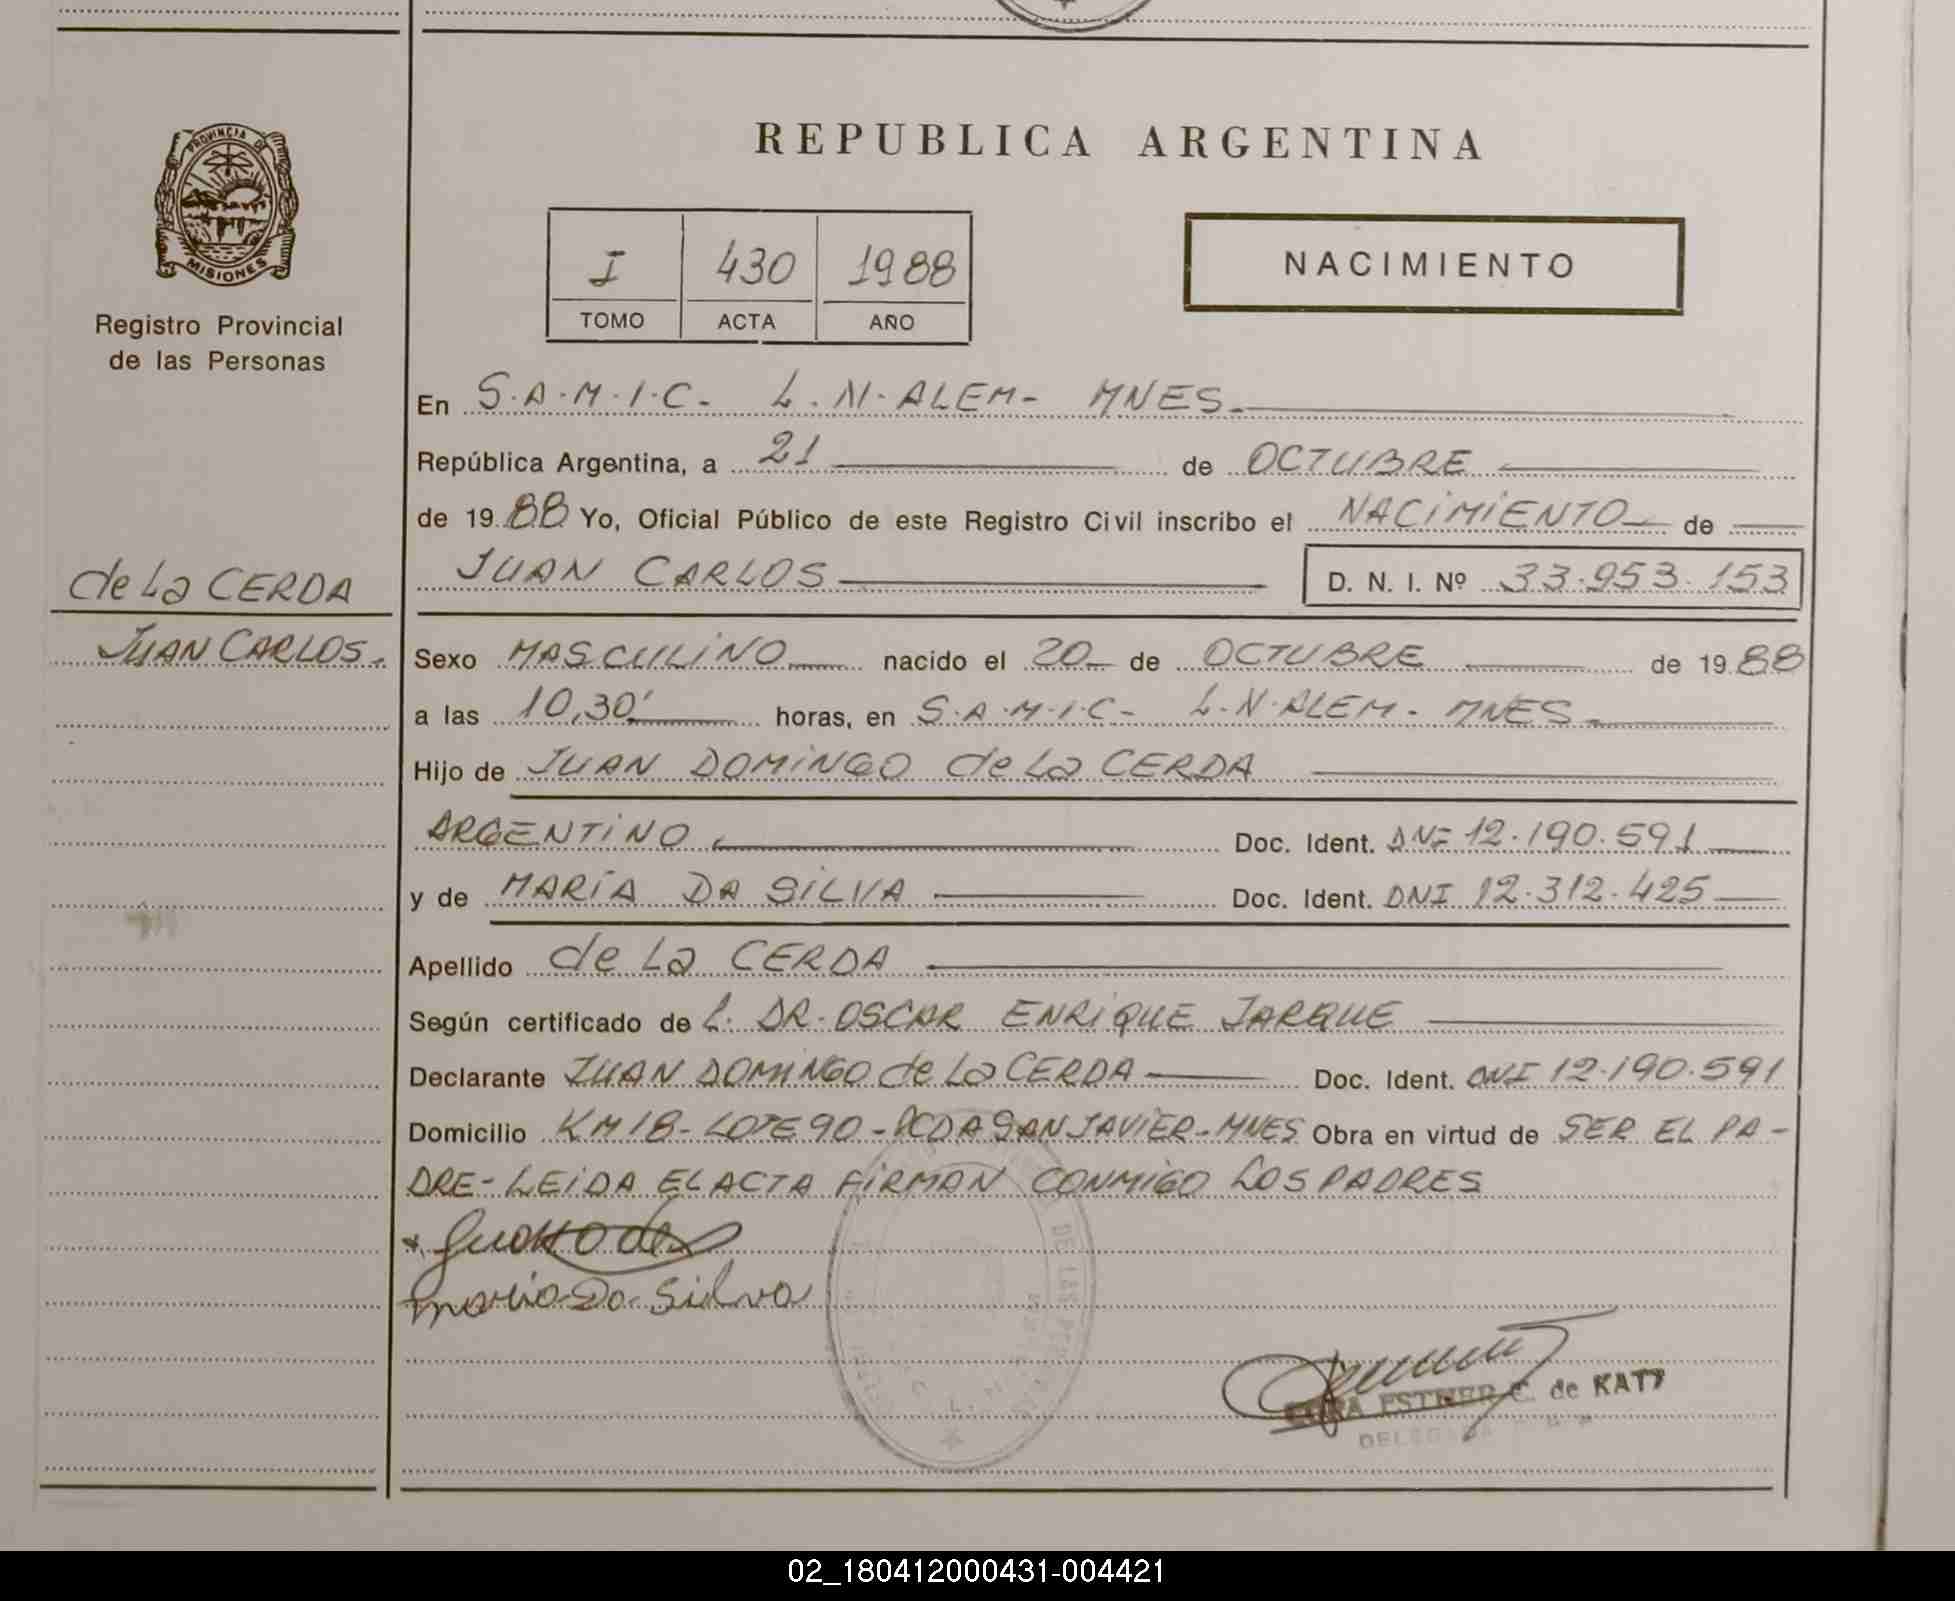 PROVINCIA DE
MISIONES
Registro Provincial
de las Personas
de La CERDA
JUAN CARLOS.
REPUBLICA ARGENTINA
I 430 1988
TOMO ACTA AÑO
NACIMIENTO
En S.A.M.I.C- L.N.ALEM- MNES.
República Argentina, a 21 de OCTUBRE
de 1988 Yo, Oficial Público de este Registro Civil inscribo el NACIMIENTO de
JUAN CARLOS D. N. I. Nº 33.953.153
Sexo MASCULINO nacido el 20 de OCTUBRE de 1988
a las 10,30' horas, en S.A.M.I.C- L.N.ALEM- MNES.
Hijo de JUAN DOMINGO de La CERDA
ARGENTINO Doc. Ident. DNI 12.190.591
y de MARÍA DA SILVA Doc. Ident. DNI 12.312.425
Apellido de La CERDA
Según certificado de L. DR. OSCAR ENRIQUE JARQUE
Declarante JUAN DOMINGO de La CERDA Doc. Ident. DNI 12.190.591
Domicilio KM 18- LOTE 90 - PCDA SAN JAVIER- MNES Obra en virtud de SER EL PA-
DRE- LEIDA EL ACTA FIRMAN CONMIGO LOS PADRES
maria Da Silva
DE LAS
ESTHER C. de KATZ
DELEGADA
02_180412000431-004421